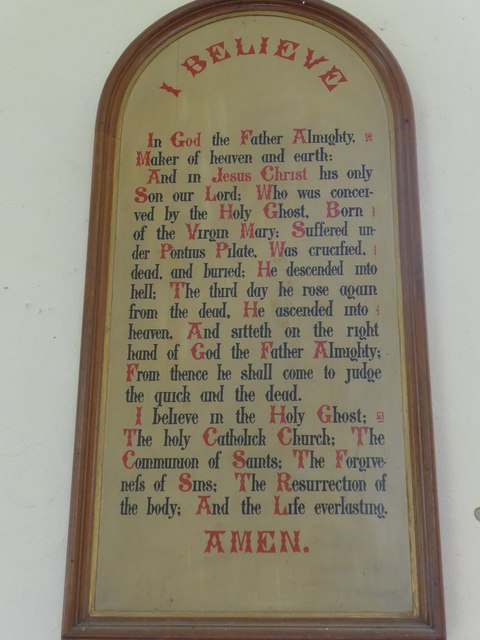 I BELIEVE
In God the Father Almighty,
Maker of heaven and earth:
And in Jesus Christ his only
Son our Lord; Who was concei-
ved by the Holy Ghost, Born
of the Virgin Mary; Suffered un-
der Pontius Pilate, Was crucified,
dead, and buried; He descended into
hell; The third day he rose again
from the dead, He ascended into
heaven, And sitteth on the right
hand of God the Father Almighty;
From thence he shall come to judge
the quick and the dead.
I believe in the Holy Ghost;
The holy Catholick Church; The
Communion of Saints; The Forgive-
neſs of Sins; The Resurrection of
the body; And the Life everlasting.
AMEN.